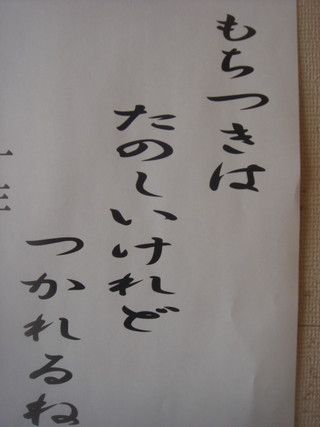 もちつきは
たのしいけれど
つかれるね